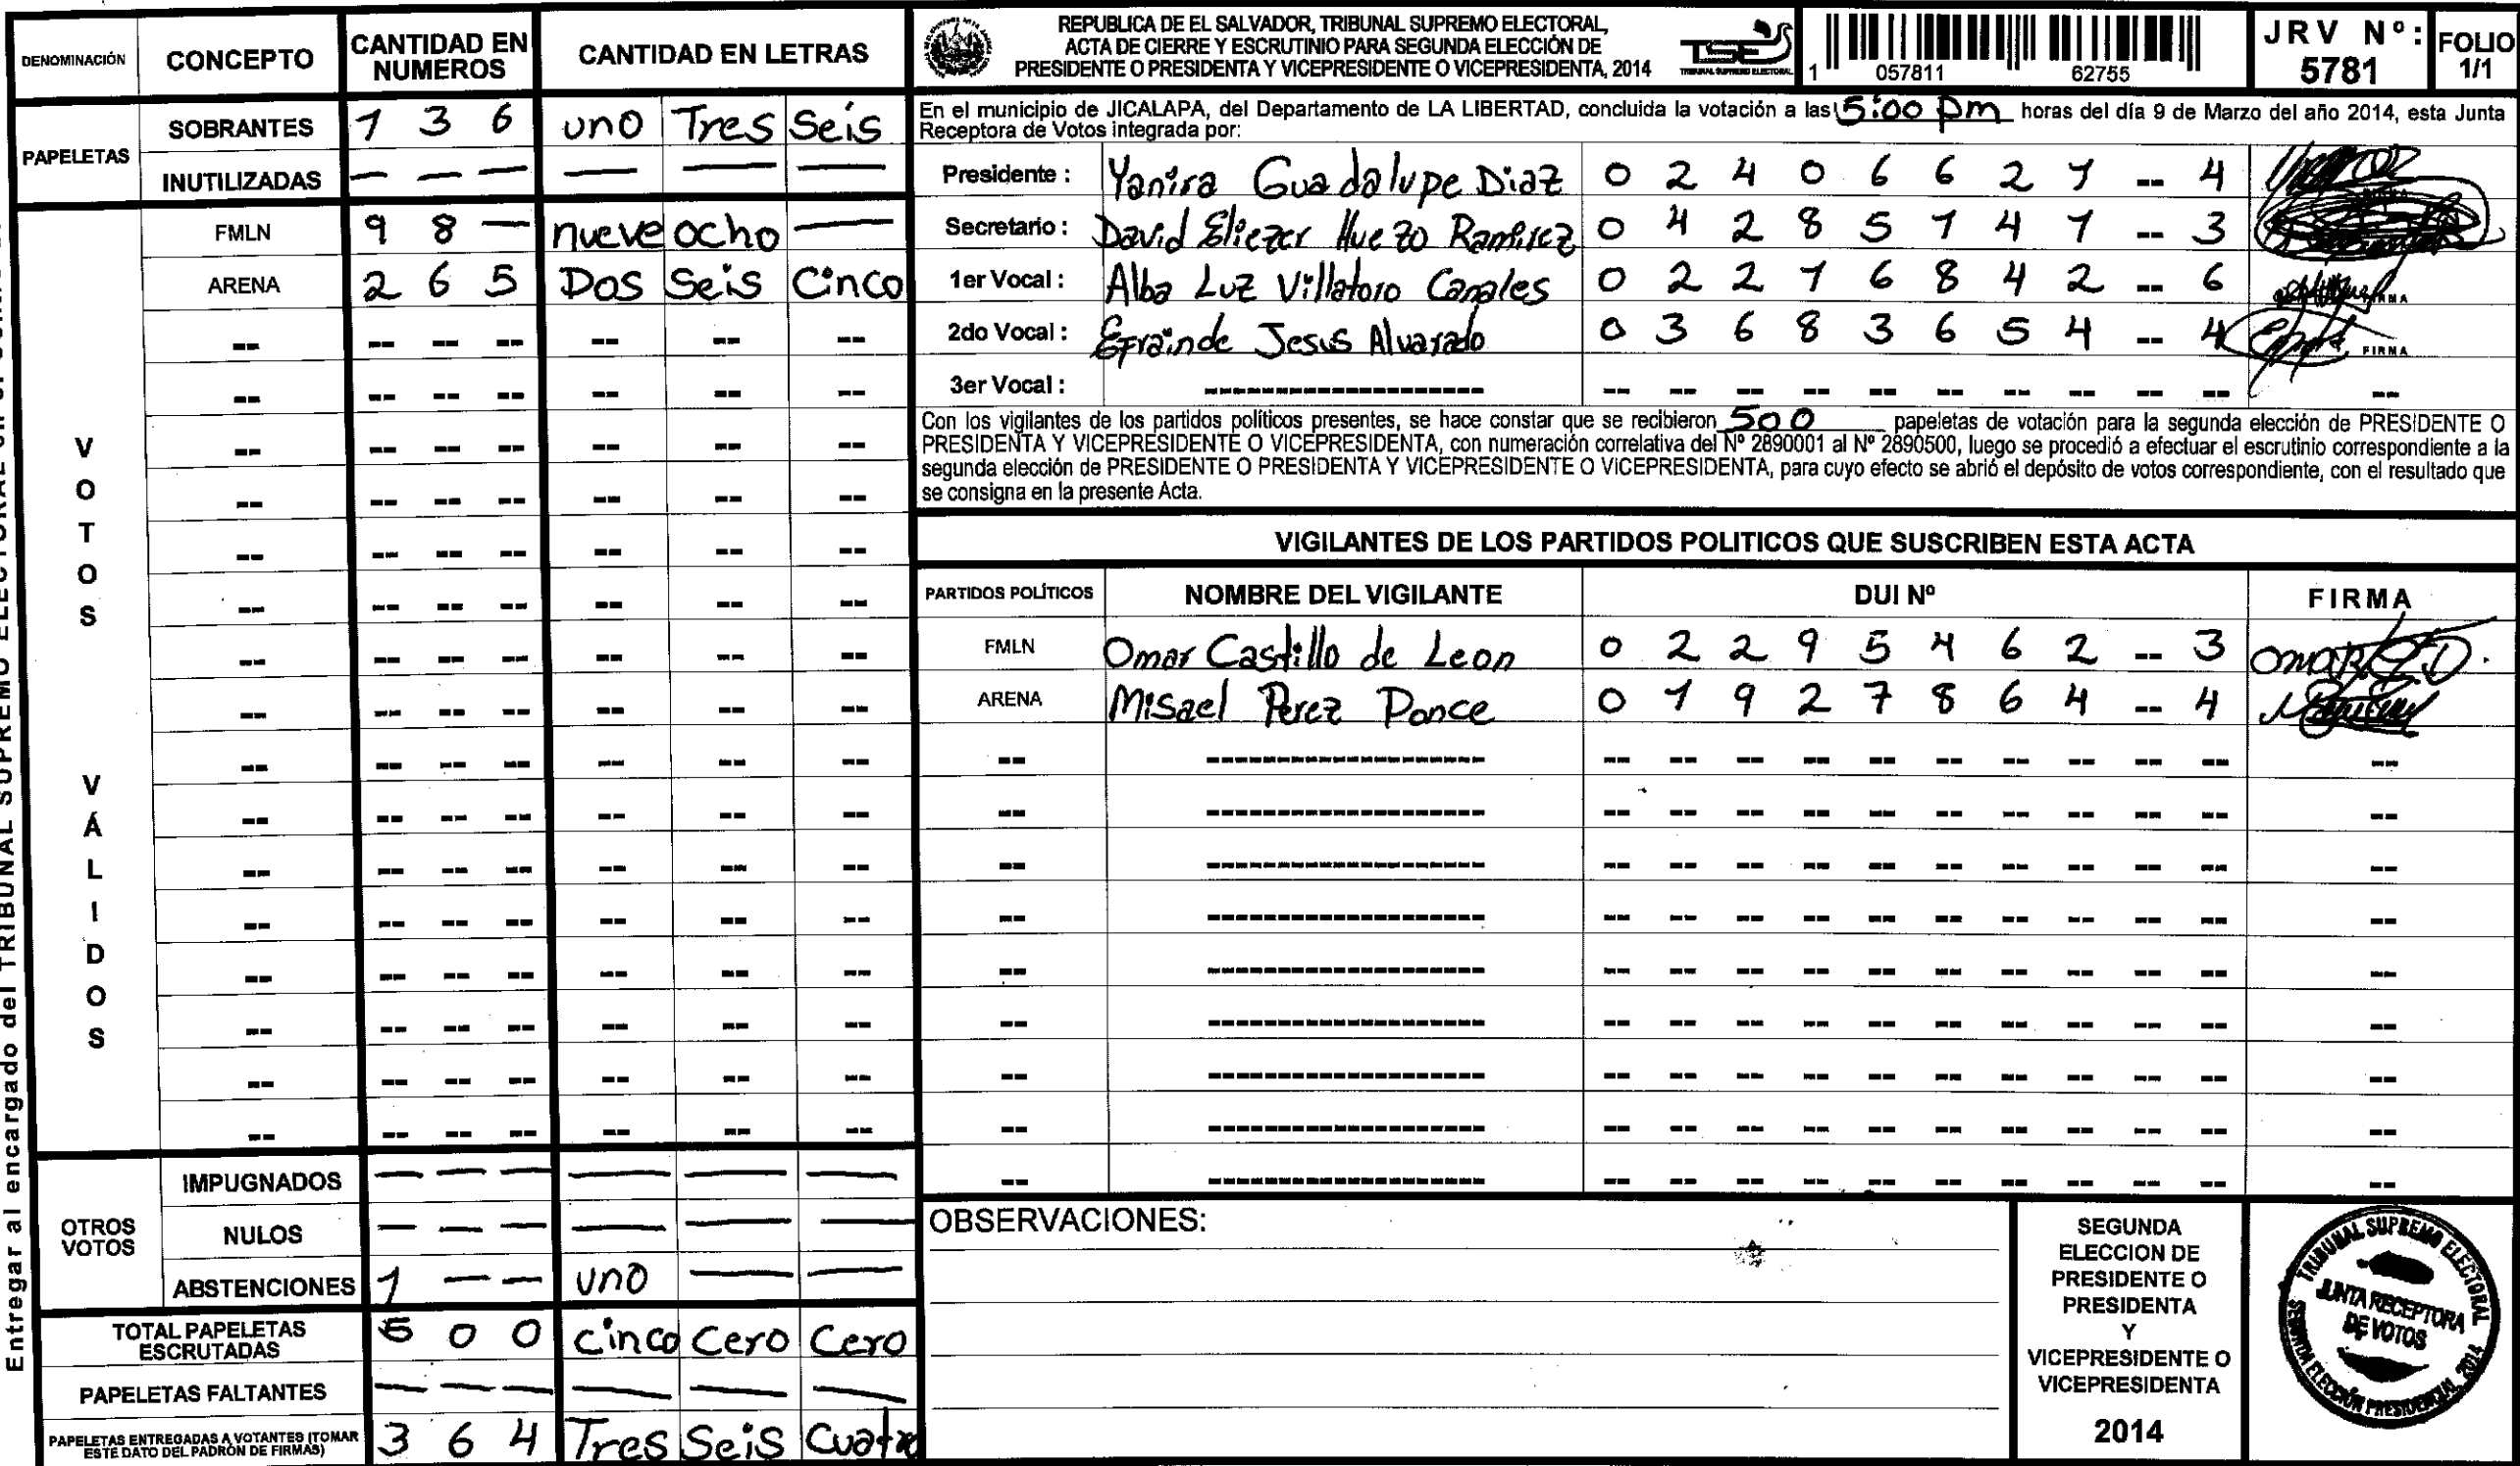 DENOMINACIÓN CONCEPTO CANTIDAD EN NUMEROS CANTIDAD EN LETRAS
PAPELETAS
SOBRANTES 1 3 6 uno Tres Seis
INUTILIZADAS — — — — — —
VOTOS VÁLIDOS
FMLN 9 8 — nueve ocho —
ARENA 2 6 5 Dos Seis Cinco
OTROS VOTOS
IMPUGNADOS — — — — — —
NULOS — — — — — —
ABSTENCIONES 1 — — uno — —
TOTAL PAPELETAS ESCRUTADAS 5 0 0 cinco Cero Cero
PAPELETAS FALTANTES — — — — — —
PAPELETAS ENTREGADAS A VOTANTES (TOMAR ESTE DATO DEL PADRÓN DE FIRMAS) 3 6 4 Tres Seis Cuatro
Entregar al encargado del TRIBUNAL SUPREMO ELECTORAL
REPUBLICA DE EL SALVADOR, TRIBUNAL SUPREMO ELECTORAL,
ACTA DE CIERRE Y ESCRUTINIO PARA SEGUNDA ELECCIÓN DE
PRESIDENTE O PRESIDENTA Y VICEPRESIDENTE O VICEPRESIDENTA, 2014
TSE
TRIBUNAL SUPREMO ELECTORAL
1 057811 62755
JRV Nº: 5781
FOLIO 1/1
En el municipio de JICALAPA, del Departamento de LA LIBERTAD, concluida la votación a las 5:00 pm horas del día 9 de Marzo del año 2014, esta Junta
Receptora de Votos integrada por:
Presidente : Yanira Guadalupe Diaz 0 2 4 0 6 6 2 1 -- 4
Secretario : David Eliezer Huezo Ramirez 0 4 2 8 5 1 4 1 -- 3
1er Vocal : Alba Luz Villatoro Canales 0 2 2 1 6 8 4 2 -- 6 FIRMA
2do Vocal : Efrainde Jesus Alvarado 0 3 6 8 3 6 5 4 -- 4 FIRMA
3er Vocal :
Con los vigilantes de los partidos políticos presentes, se hace constar que se recibieron 500 papeletas de votación para la segunda elección de PRESIDENTE O
PRESIDENTA Y VICEPRESIDENTE O VICEPRESIDENTA, con numeración correlativa del Nº 2890001 al Nº 2890500, luego se procedió a efectuar el escrutinio correspondiente a la
segunda elección de PRESIDENTE O PRESIDENTA Y VICEPRESIDENTE O VICEPRESIDENTA, para cuyo efecto se abrió el depósito de votos correspondiente, con el resultado que
se consigna en la presente Acta.
VIGILANTES DE LOS PARTIDOS POLITICOS QUE SUSCRIBEN ESTA ACTA
PARTIDOS POLÍTICOS NOMBRE DEL VIGILANTE DUI Nº FIRMA
FMLN Omar Castillo de Leon 0 2 2 9 5 4 6 2 -- 3 OMAR
ARENA Misael Perez Ponce 0 1 9 2 7 8 6 4 -- 4
OBSERVACIONES:
SEGUNDA
ELECCION DE
PRESIDENTE O
PRESIDENTA
Y
VICEPRESIDENTE O
VICEPRESIDENTA
2014
TRIBUNAL SUPREMO ELECTORAL
JUNTA RECEPTORA
DE VOTOS
SEGUNDA ELECCIÓN PRESIDENCIAL 2014